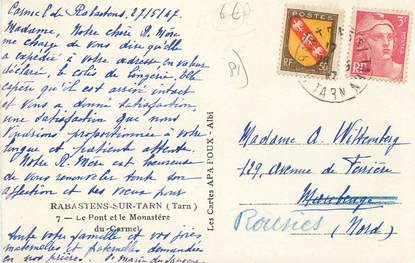 Carmel de Rabastens, 27/5/47.
Madame, Notre chère R. Mère
me charge de vous dire qu'elle
a expédié à votre adresse, en valeur
déclarée, le colis de lingerie. Elle
espère qu'il est arrivé intact
et vous a donné satisfaction,
une satisfaction que nous
voudrions proportionnée à votre
longue et patiente attente.
Notre R. Mère est heureuse
de vous renouveler toute son
affection et ses vœux pour
RABASTENS-SUR-TARN (Tarn)
7 — Le Pont et le Monastère
du Carmel
toute votre famille et vos joies
maternelles et paternelles demandées
en vos prières. Sr Marie du
Les Cartes APA POUX - Albi
6 €
P)
POSTES
RF
50
3F
RF
TARN
Madame A. Wittemberg
129, Avenue de
Maubeuge
Rousies
(Nord)